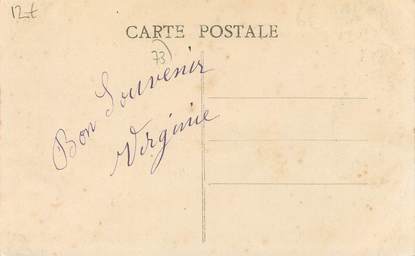 12t
CARTE POSTALE
73)
Bon Souvenir
Virginie